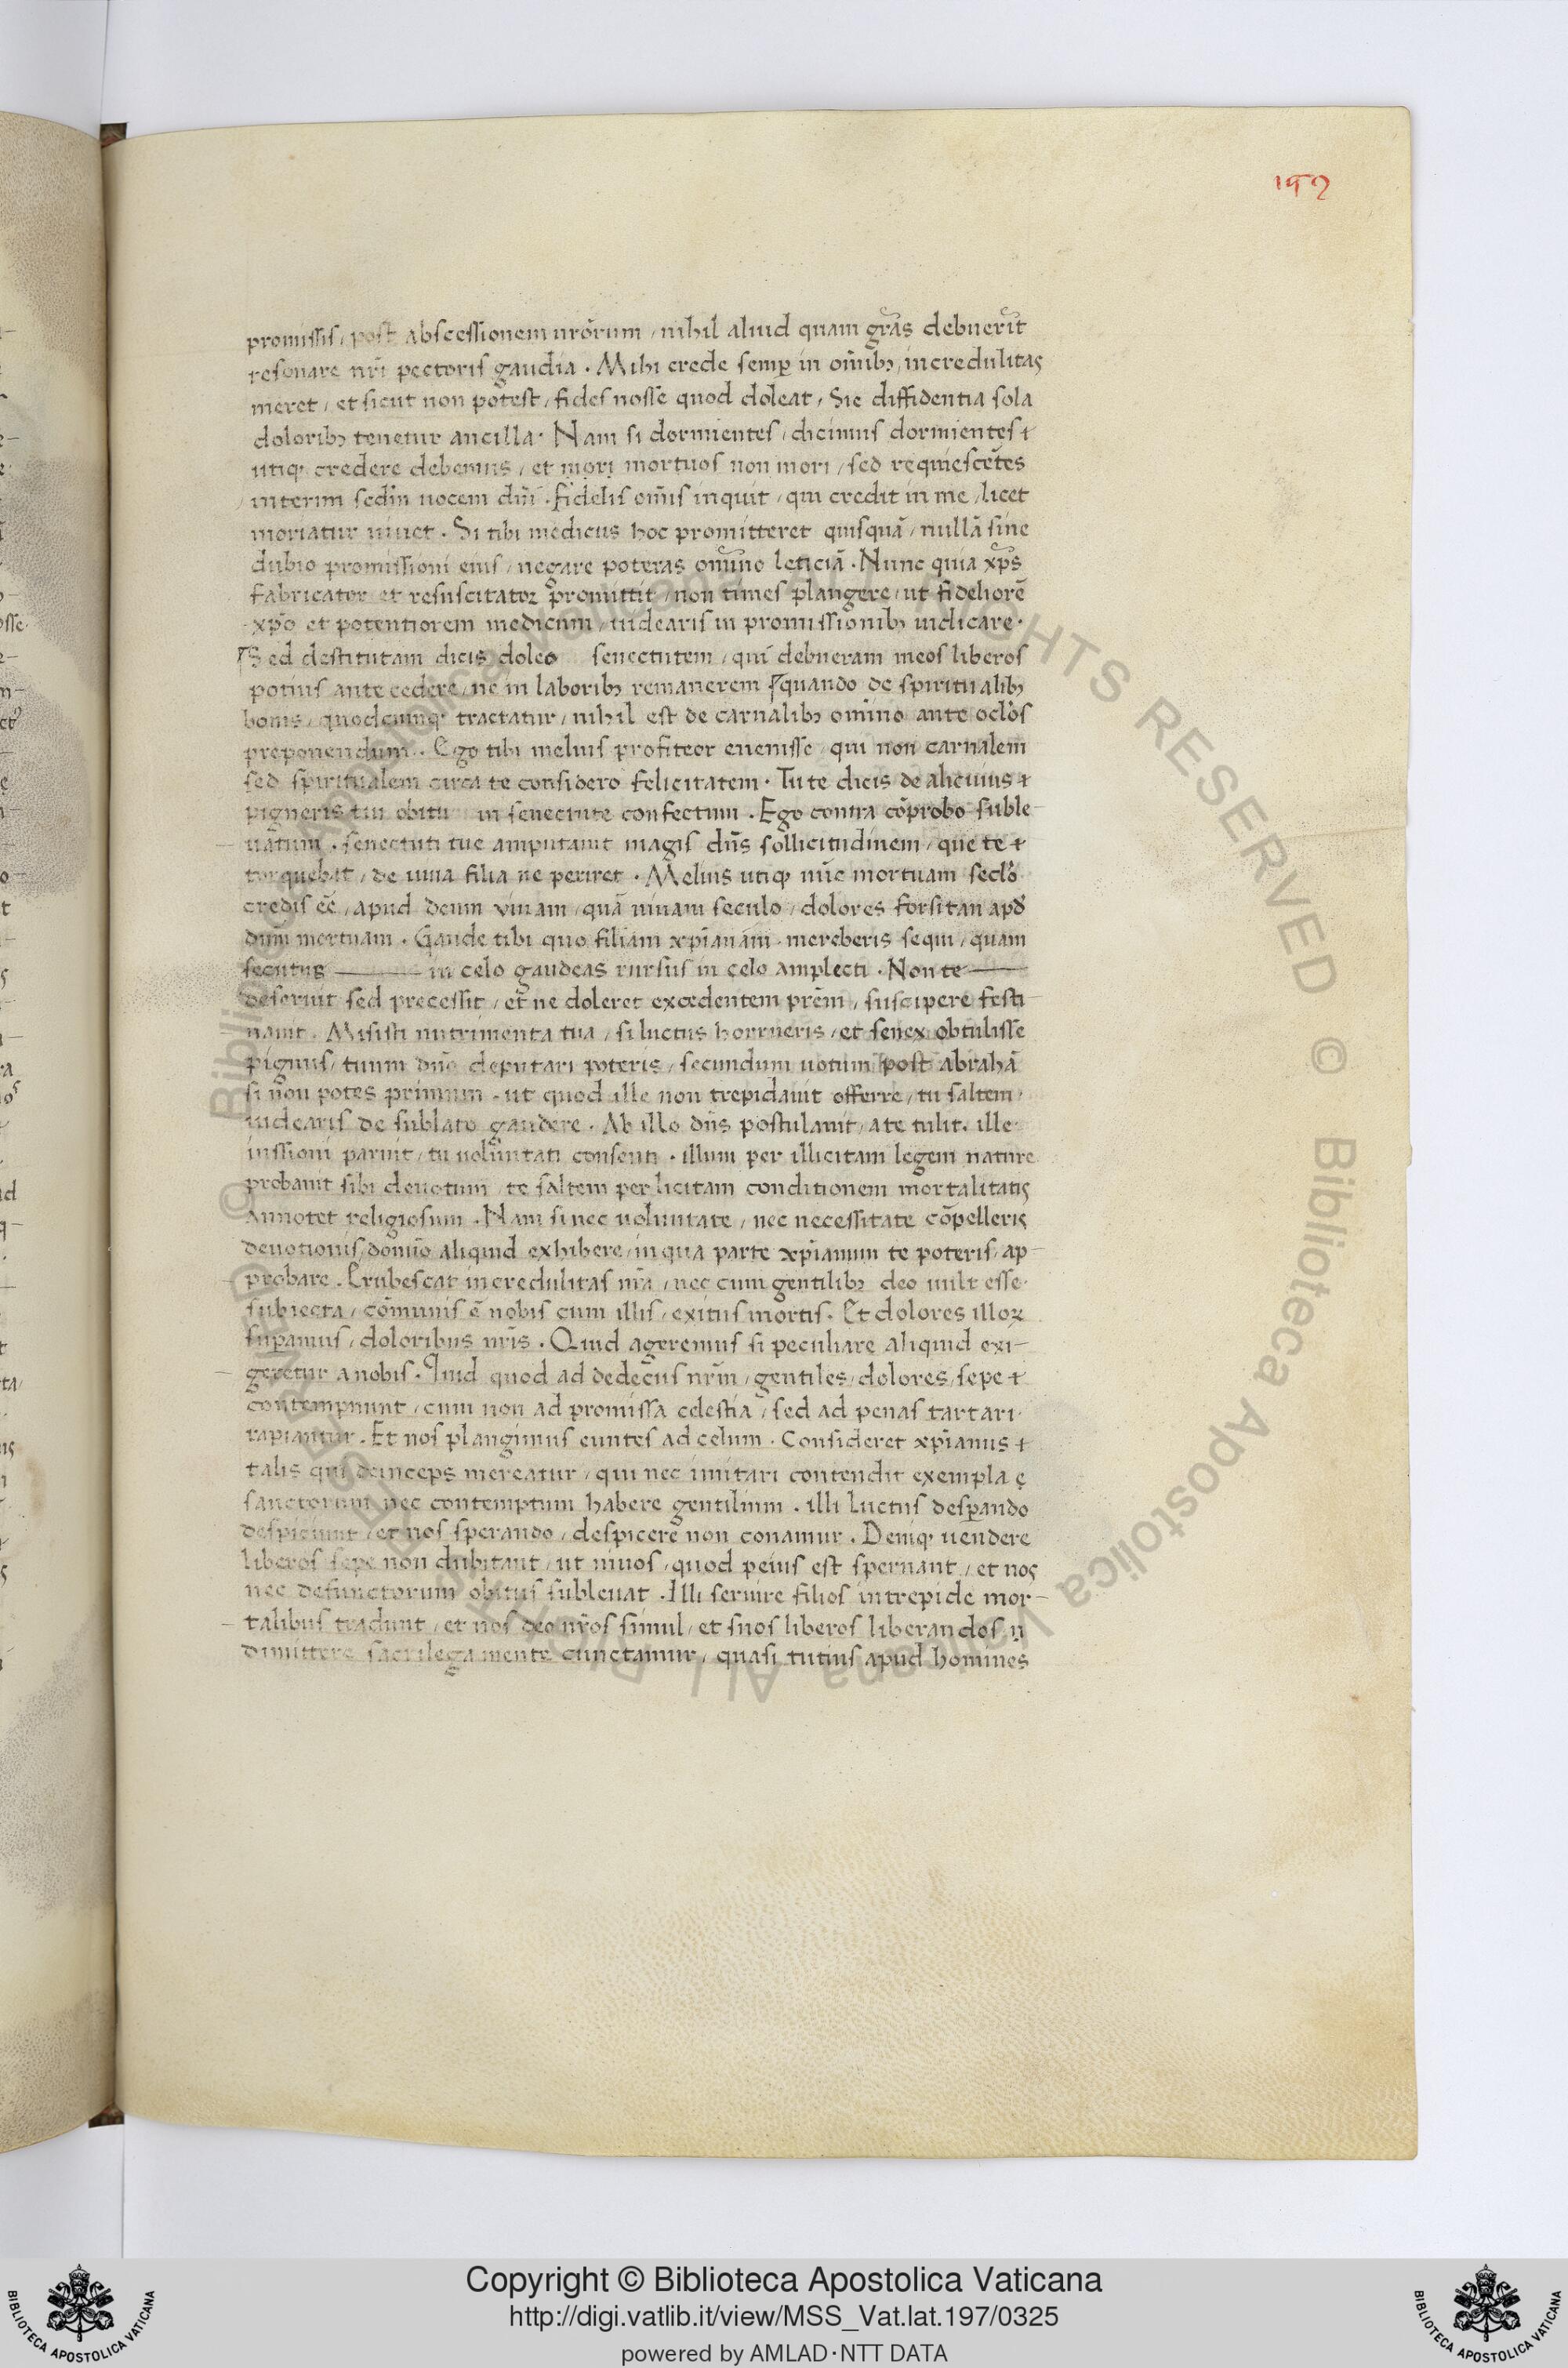 152
promissis / post abscessionem uror̄um / nihil aliud quam gr̄as debuer̄it
resonare nr̄i pectoris gaudia . Mihi crede semꝑ in om̄ibꝫ incredulitas
meret / et sicut non potest / fides nosse quod doleat / Sic diffidentia sola
doloribꝫ tenetur ancilla . Nam si dormientes / dicimus dormientes
utiqꝫ credere debemus / et mori mortuos non mori / sed requiescētes
interim secdm̄ uocem dn̄i . fidelis om̄is inquit / qui credit in me / licet
moriatur uiuet . Si tibi medicus hoc promitteret quisquā / nullā sine
dubio promissioni eius / negare poteras om̄ino leticiā . Nunc quia xp̄s
fabricator et resuscitatoꝛ promittit / non times plangere / ut fideliorē
xp̄o et potentiorem medicum / uidearis in promissionibꝫ iudicare .
Sed destitutam dicis doleo senectutem / qui debueram meos liberos
potius ante cedere / ne in laboribꝫ remanerem quando de spiritualibꝫ
bonis / quodcumqꝫ tractatur / nihil est de carnalibꝫ omino ante oclos
preponendum . Ego tibi melius profiteor euenisse / qui non carnalem
sed spiritualem circa te considero felicitatem . Tu te dicis de alicuius
pigneris tui obitu in senectute confectum . Ego contra cōprobo suble
uatum . senectuti tue amputauit magis dn̄s sollicitudinem / que te
torquebat / de uiua filia ne periret . Melius utiqꝫ nūc mortuam seclo
credis eē / apud deum viuam / quā uiuam seculo / dolores forsitan apd
dum̄ mortuam . Gaude tibi quo filiam xp̄ianam mereberis sequi / quam
secutus in celo gaudeas rursus in celo amplecti . Non te
deseruit sed precessit / et ne doleret excedentem prēm / suscipere festi
nauit . Misisti nutrimenta tua / si luctus horrueris / et senex obtulisse
pignus / tuum dn̄o deputari poteris / secundum uotum post abrahā
si non potes primum . ut quod ille non trepidauit offerre / tu saltem
uidearis de sublato gaudere . Ab illo dn̄s postulauit / a te tulit . ille
iussioni paruit / tu uoluntati consenti . illum per illicitam legem nature
probauit sibi deuotum / te saltem per licitam conditionem mortalitatis
Annotet religiosum . Nam si nec uoluntate / nec necessitate cōpelleris
deuotionis / domino aliquid exhibere / in qua parte xp̄ianum te poteris / ap
probare . Erubescat incredulitas nr̄a / nec cum gentilibꝫ deo uult esse
subiecta / cōmunis ē nobis cum illis / exitus mortis . Et dolores illoꝝ
suꝑamus / doloribus nr̄is . Quid ageremus si peculiare aliquid exi
geretur a nobis . Quid quod ad dedecus nr̄m / gentiles / dolores / sepe
contempnunt / cum non ad promissa celestia / sed ad penas tartari
rapiantur . Et nos plangimus euntes ad celum . Consideret xp̄ianus
talis qui deinceps mereatur / qui nec imitari contendit exempla
sanctorum nec contemptum habere gentilium . illi luctus desꝑando
despiciunt / et nos sperando / despicere non conamur . Deniqꝫ uendere
liberos sepe non dubitant / ut uiuos / quod peius est spernant / et nos
nec defunctorum obitus subleuat . Illi seruire filios intrepide mor
talibus tradunt / et nos deo nr̄os simul / et suos liberos liberandos
dimittere sacrilega mente cunctamur / quasi tutius apud homines
© Biblioteca Apostolica Vaticana ALL RIGHTS RESERVED
© Biblioteca Apostolica Vaticana ALL RIGHTS RESERVED
BIBLIOTECA APOSTOLICA VATICANA
Copyright © Biblioteca Apostolica Vaticana
http://digi.vatlib.it/view/MSS_Vat.lat.197/0325
powered by AMLAD·NTT DATA
BIBLIOTECA APOSTOLICA VATICANA